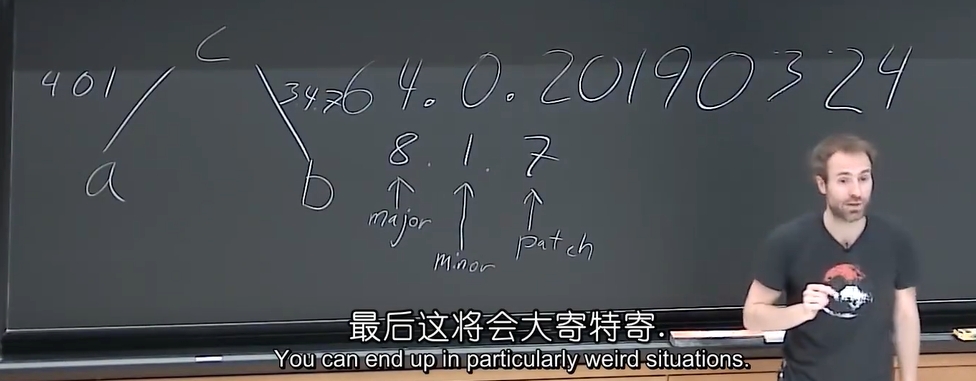 c
401
34.7
64.0.20190324
8.1.7
a
b
major
minor
patch
最后这将会大寄特寄.
You can end up in particularly weird situations.